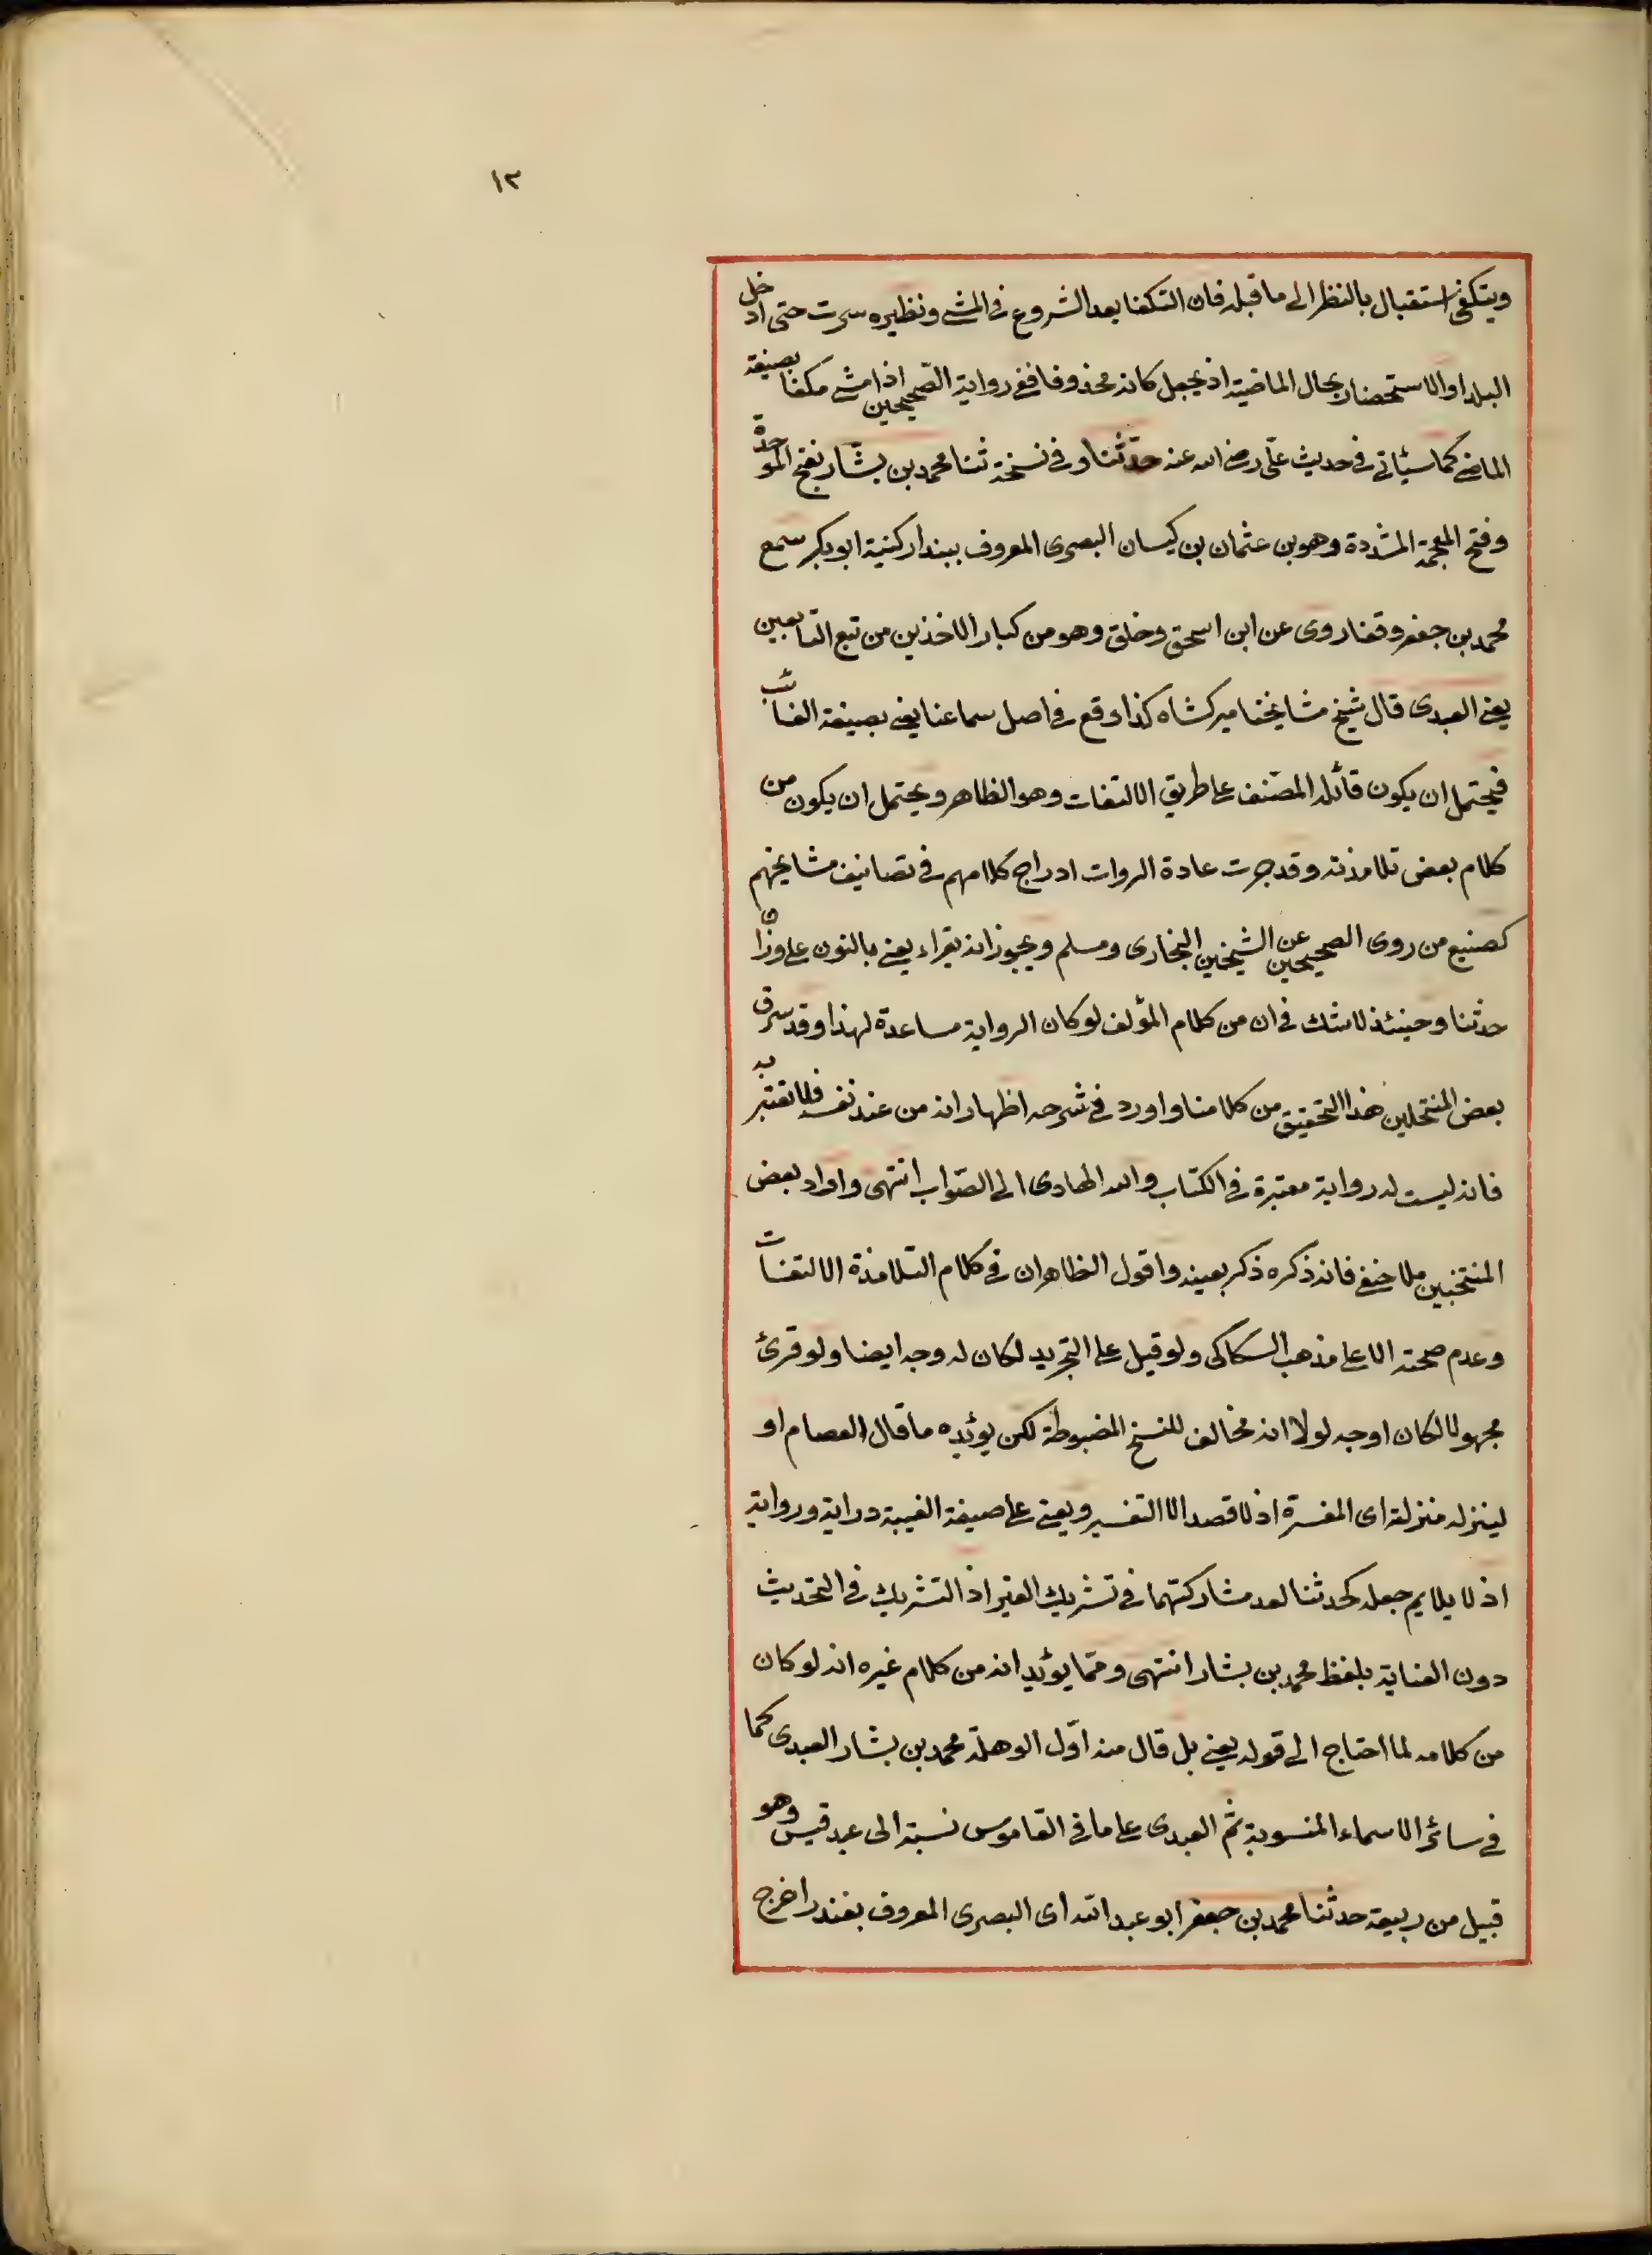 ١٢
ويتكفى استقبال بالنظر الى ما قبله فان التكفا بعد الشروع فى المشى ونظيره سرت حتى ادخل
البلد او الاستحضار بحال الماضية اذ يجعل كانه محذوفا ففى رواية الصحيحين اذا مشى مكفا بصيغة
الماضى كما سيئاتى فى حديث علّى رضى الله عنه حدثنا وفى نسخة ثنا محمد بن بشّار بفتح الموحدّة
وفتح المعجمة المشددة وهو بن عثمان بن كيسان البصرى المعروف ببندار كنية ابو بكر سمع
محمد بن جعفر وقفا روى عن ابن اسحق وخلق وهو من كبار الاخذين من تبع التابعين
يعنى العبدى قال شيخ مشايخنا ميركشاه كذا وقع فى اصل سماعنا يعنى بصيغة الغائب
فيحتمل ان يكون قائله المصّنف على طريق الالتفات وهو الظاهر ويحتمل ان يكون من
كلام بعض تلامذته وقد جرت عادة الروات ادراج كلامهم فى تصانيف مشايخهم
كصنيع من روى الصحيحين عن الشيخين البخارى ومسلم ويجوز انه يقراء يعنى بالنون على وزان
حدثنا وحينئذ لا شك فى ان من كلام المؤلف لو كان الرواية مساعدة لهذا وقد سرق
بعض المنتحلين هذا التحقيق من كلامنا واورد فى شرحه اظهارانه من عند نفسه فلا تغتر به
فانه ليست له رواية معتبرة فى الكتاب والله الهادى الى الصّواب انتهى واراد ببعض
المنتخبين ملا حنفى فانه ذكره ذكر بعينه واقول الظاهر ان فى كلام التلامذة الالتفات
وعدم صحته الا على مذهب السكاكى ولو قيل على التجريد لكان له وجه ايضا ولو قرئ
مجهولا لكان اوجه لولا انه مخالف للنسخ المضبوطة لكن يوئده ما قال العصام او
لينزله منزلة اى المفسرة اذ لا قصد الا التفسير ويعنى على صيغة الغيبة دراية ورواية
اذ لا يلايم جعله كحدثنا لعد مشاركتهما فى تشريك الغير اذ التشريك فى التحديث
دون العناية بلفظ محمد بن بشار انتهى وممّا يوئد انه من كلام غيره انه لو كان
من كلامه لما احتاج الى قوله يعنى بل قال منه اوّل الوهلة محمد بن بشار العبدى كما
فى سائر الاسماء المنسوبة ثمّ العبدى على ما فى القاموس نسبة الى عبد قيس وهو
قبيل من ربيعة حدثنا محمد بن جعفر ابو عبد الله اى البصرى المعروف بغندر اخرج